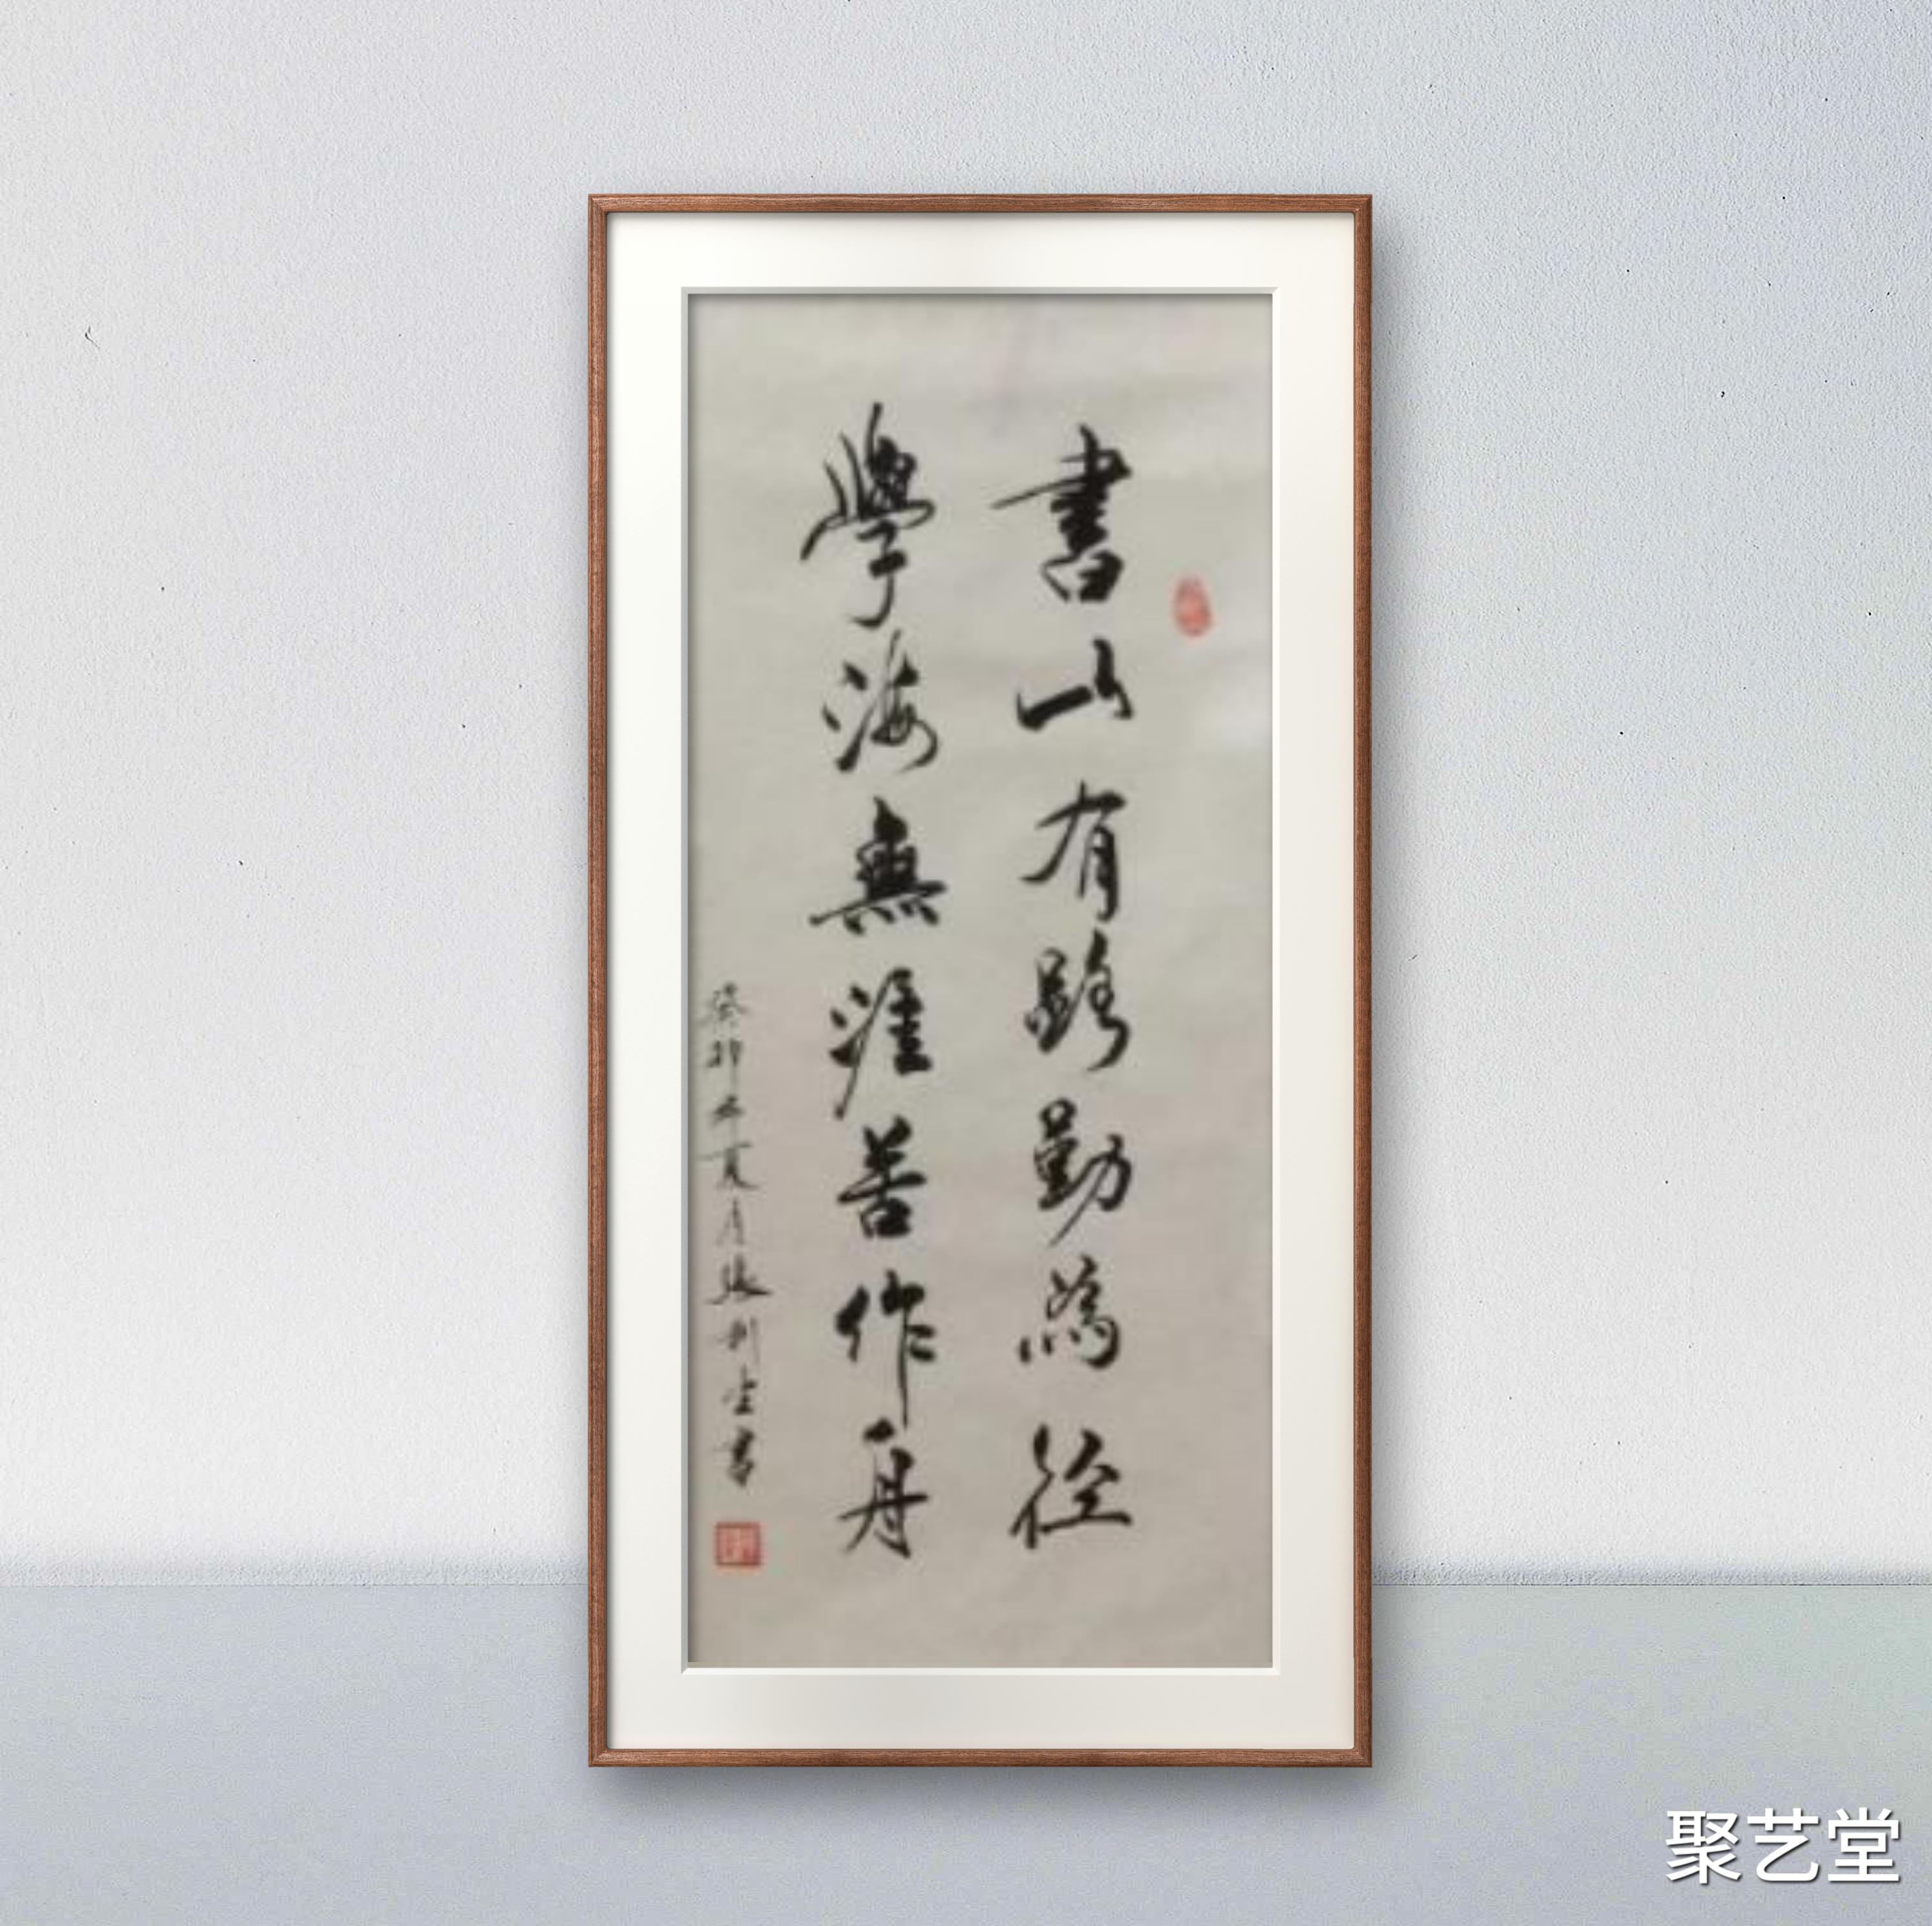 書山有路勤為径
學海無涯苦作舟
癸卯年夏月張利生書
聚艺堂